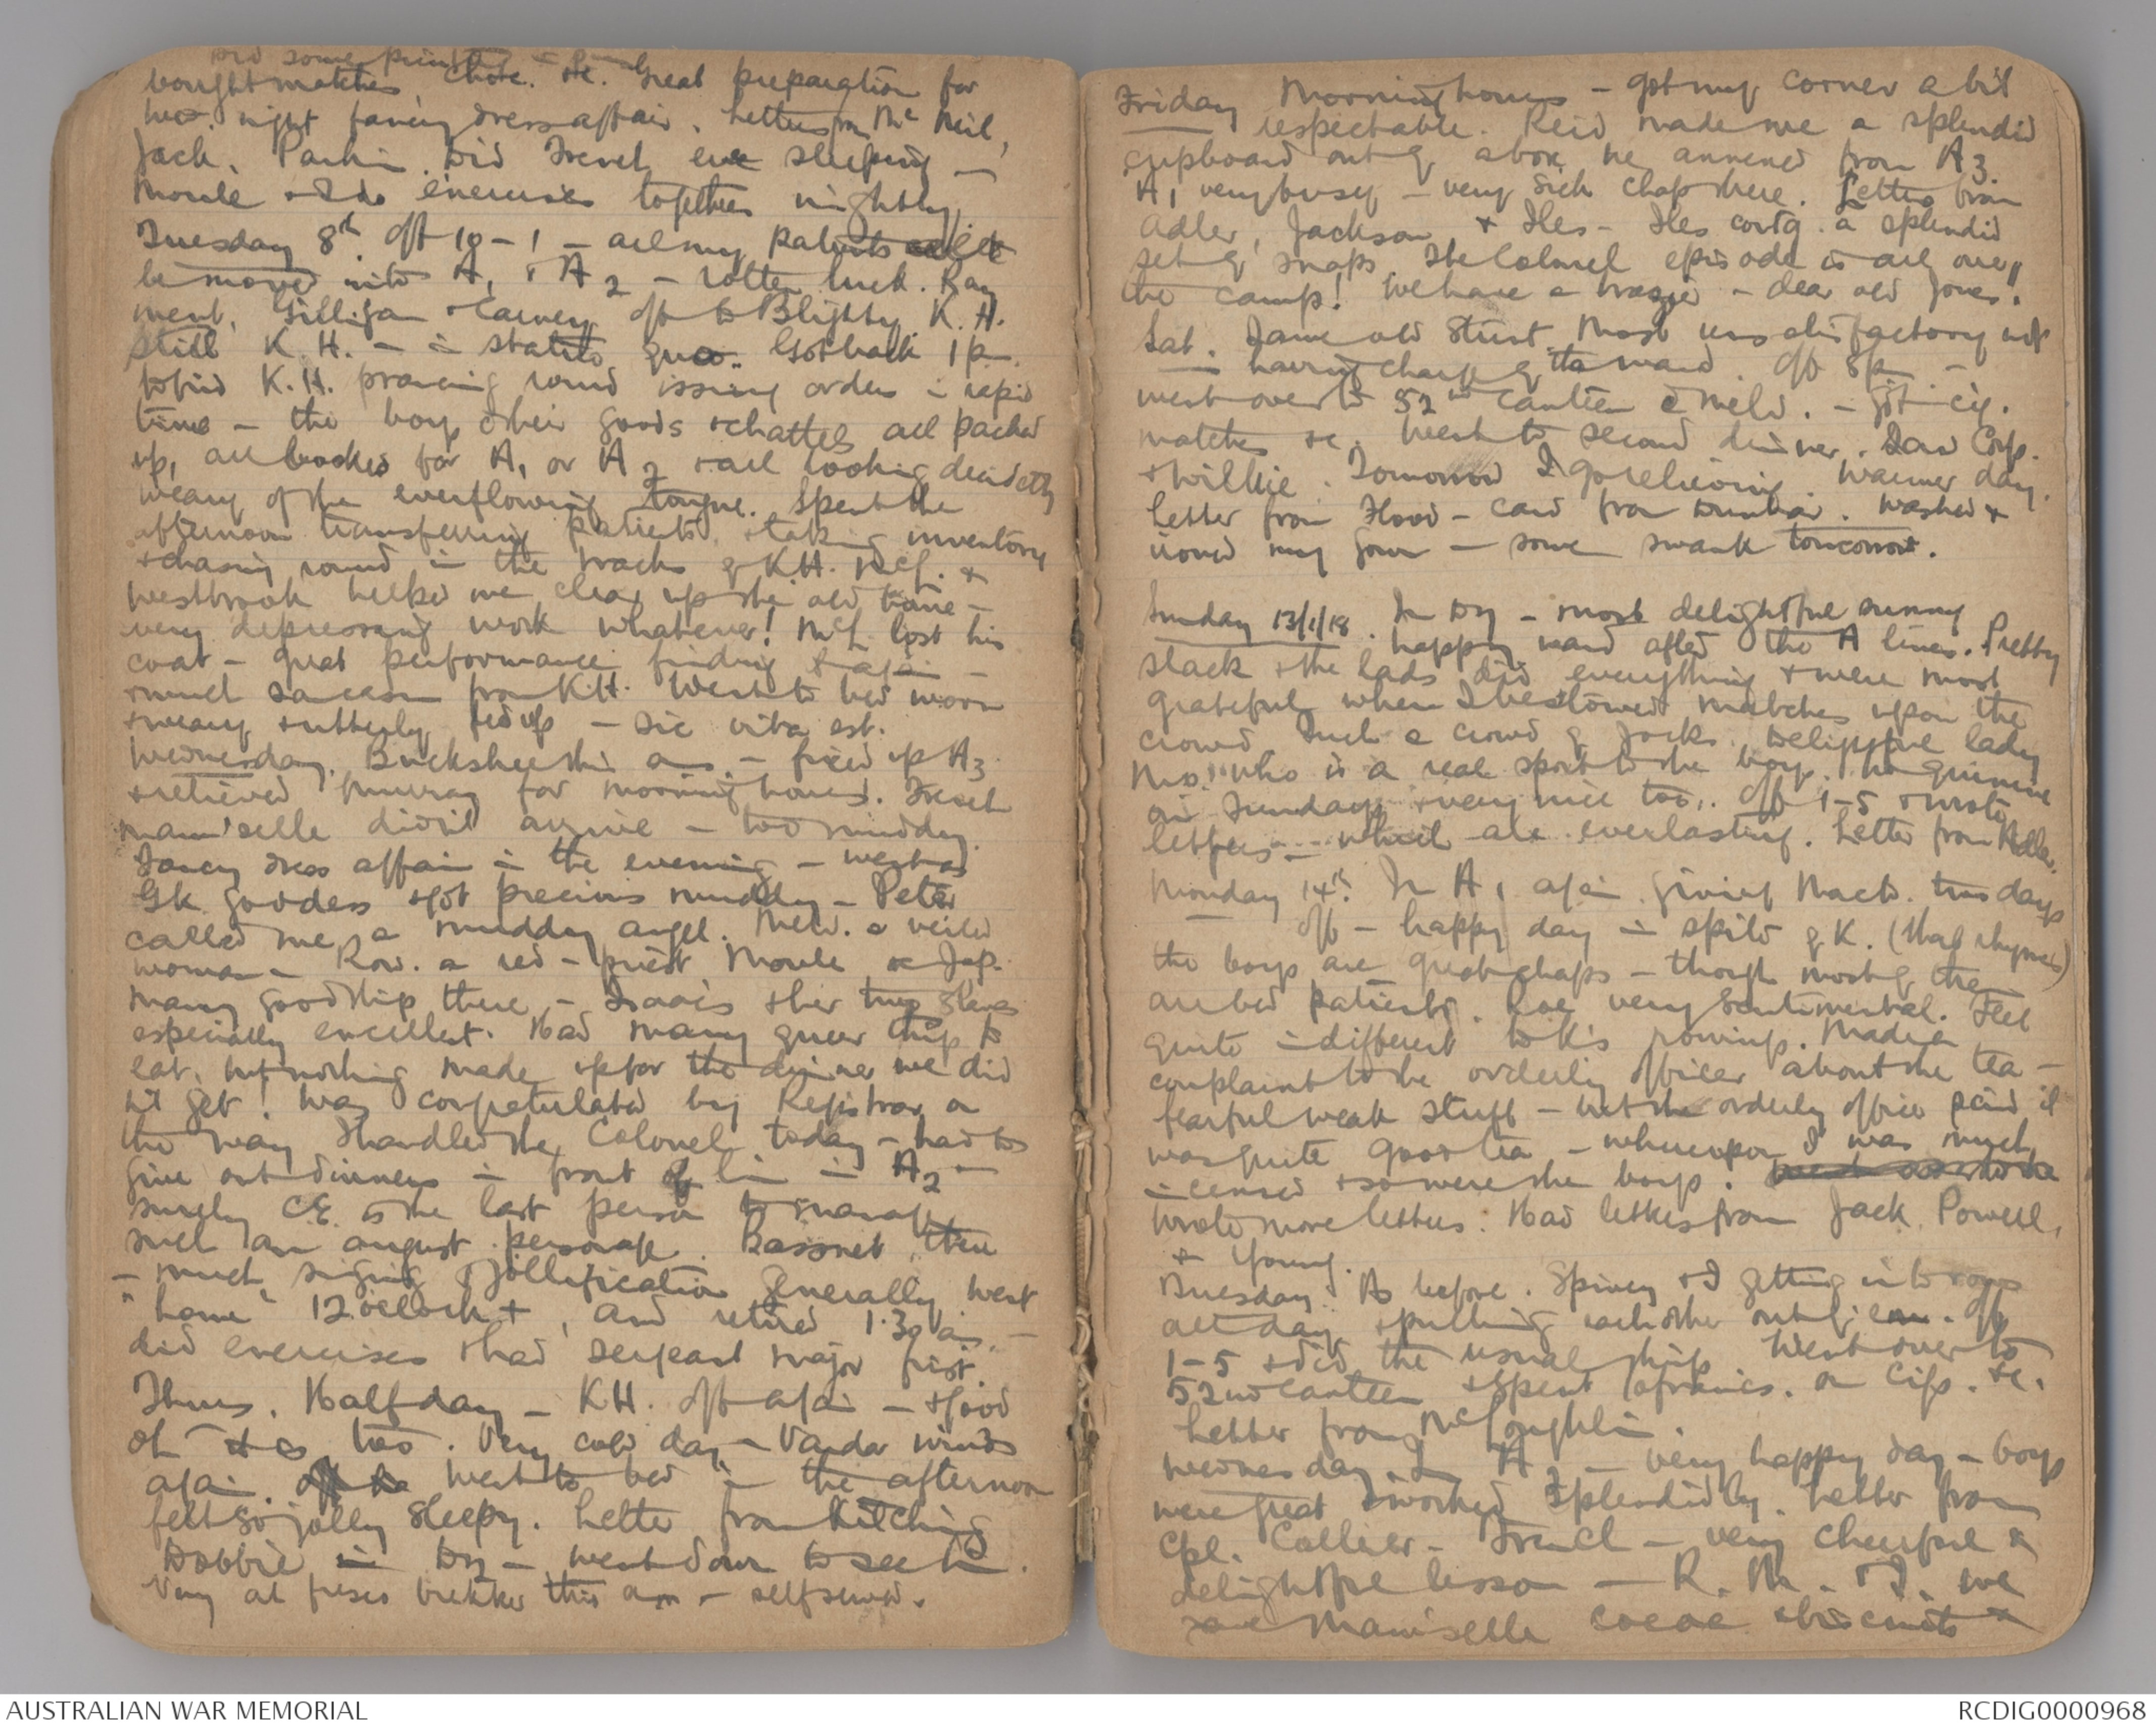 Did some printing
bought matches, choc. &c. Great preparation for
Wed. night fancy dress affair. Letters fm Mc Neil,
Jack. Parkin. Did French ere sleeping —
Moule & I do exercises together nightly.
Tuesday 8th. Off 10-1 — all my patients
be moved into A1 & A2 — rotten luck. Ray
ment, Gilligan & Carney off to Blighty. K.H.
still K.H. — in statuo quo. Got back 1 p.m.
to find K.H. prancing round issuing orders in rapid
time — the boys & their goods & chattels all packed
up, all booked for A1 or A2 & all looking decidedly
weary of the everflowing tongue. Spent the
afternoon transferring patients, & taking inventory
& chasing round in the tracks of K.H. McL. &
Westbrook helped me clear up the old
very depressing work whatever! McL. lost his
coat — great performance finding it again —
& much sarcasm from K.H. Went to bed worn
& weary & utterly fed up — sic vita est.
Wednesday. Bucksheesh a.m. — fixed up A3
& relieved Murray for morning hours. French
mam'selle didn't arrive — too muddy.
Fancy dress affair in the evening — went as
Gk. goddess & got precious muddy — Peter
called me a muddy angel. Melv. a veiled
woman — Row. a red-priest. Moule a Jap.
Many good things there — & her two slaves
especially excellent. Had many queer things to
eat, but nothing made up for the dinner we did
n't get! Was congratulated by Registrar on
the way I handled the Colonel today — had to
give out dinners in front of him in A2 —
surely C.E. is the last person to manage
such an august personage. Bassnet there
— much singing & jollification generally. Went
"home" 12 o'clock +, and retired 1.30 a.m. —
did exercises & had sergeant major first.
Thurs. Half day — K.H. off again — & good
too. Very cold day — Vardar winds
again. Went to bed in the afternoon
felt so jolly sleepy. Letter from Kitching
Dobbie in D7 — went down to see him.
Very at brekker this a.m. — self served.
Friday Morning hours — got my corner a bit
respectable. Reid made me a splendid
cupboard out of a box he annexed from A3.
A1 very busy — very sick chap there. Letters from
Adler, Jackson & Iles — Iles contg. a splendid
set of snaps. The Colonel episode is all over
the camp! We have a brazier — dear old Jones.
Sat. Same old stunt. Most unsatisfactory not
having charge of the ward. Off 8 p.m. —
went over to 52nd canteen c Melv. — got cig.
matches &c. Went to second dinner. Saw Corp.
& Willie. Tomorrow I go relieving. Warmer day.
Letter from Flood — card from Dunbar. Washed &
ironed my gown — some swank tomorrow.
Sunday 13/1/18. In D7 — most delightful sunny
happy ward after the A lines. Pretty
slack & the lads did everything & were most
grateful when I bestowed matches upon the
crowd. Such a crowd of Jocks. Delightful lady
M.O. who is a real sport to the boys. No quinine
on Sundays & very nice too. Off 1-5 & wrote
letters — which are everlasting. Letter from Adler.
Monday 14th. In A1 again giving Mack. two days
off — happy day in spite of K. (that rhymes)
the boys are great chaps — though most of them
are bed patients. Roe very sentimental. Feel
quite indifferent to K's rowings. Made a
complaint to the orderly officer about the tea —
fearful weak stuff — but the orderly officer said it
was quite good tea — whereupon I was much
incensed & so were the boys.
Wrote more letters. Had letters from Jack, Powell,
& Young.
Tuesday. As before. Spivey & I getting into rows
all day & pulling each other out of 'em. Off
1-5 & did the usual things. Went over to
52nd canteen & spent francs. on cigs. &c.
Letter from McLoughlin.
Wednesday. In A2 — very happy day — boys
were great & worked splendidly. Letter from
Cpl. Collier — French — very cheerful &
delightful lesson — R. M. & I. we
gave Mam'selle cocoa & biscuits &
AUSTRALIAN WAR MEMORIAL
RCDIG0000968